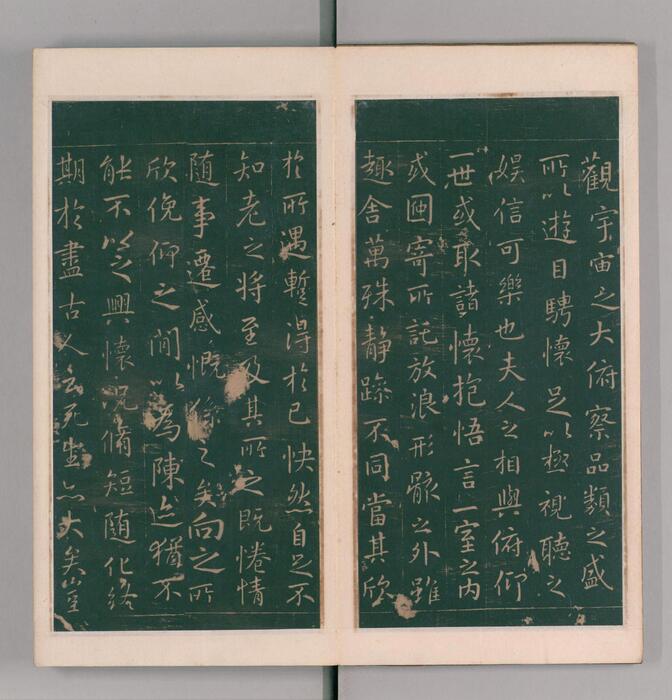 觀宇宙之大俯察品類之盛
所以遊目騁懷足以極視聽之
娛信可樂也夫人之相與俯仰
一世或取諸懷抱悟言一室之內
或因寄所託放浪形骸之外雖
趣舍萬殊靜躁不同當其欣
於所遇蹔得於己怏然自足不
知老之將至及其所之既惓情
隨事遷感慨係之矣向之所
欣俛仰之間以為陳迹猶不
能不以之興懷況脩短隨化終
期於盡古人云死生亦大矣豈